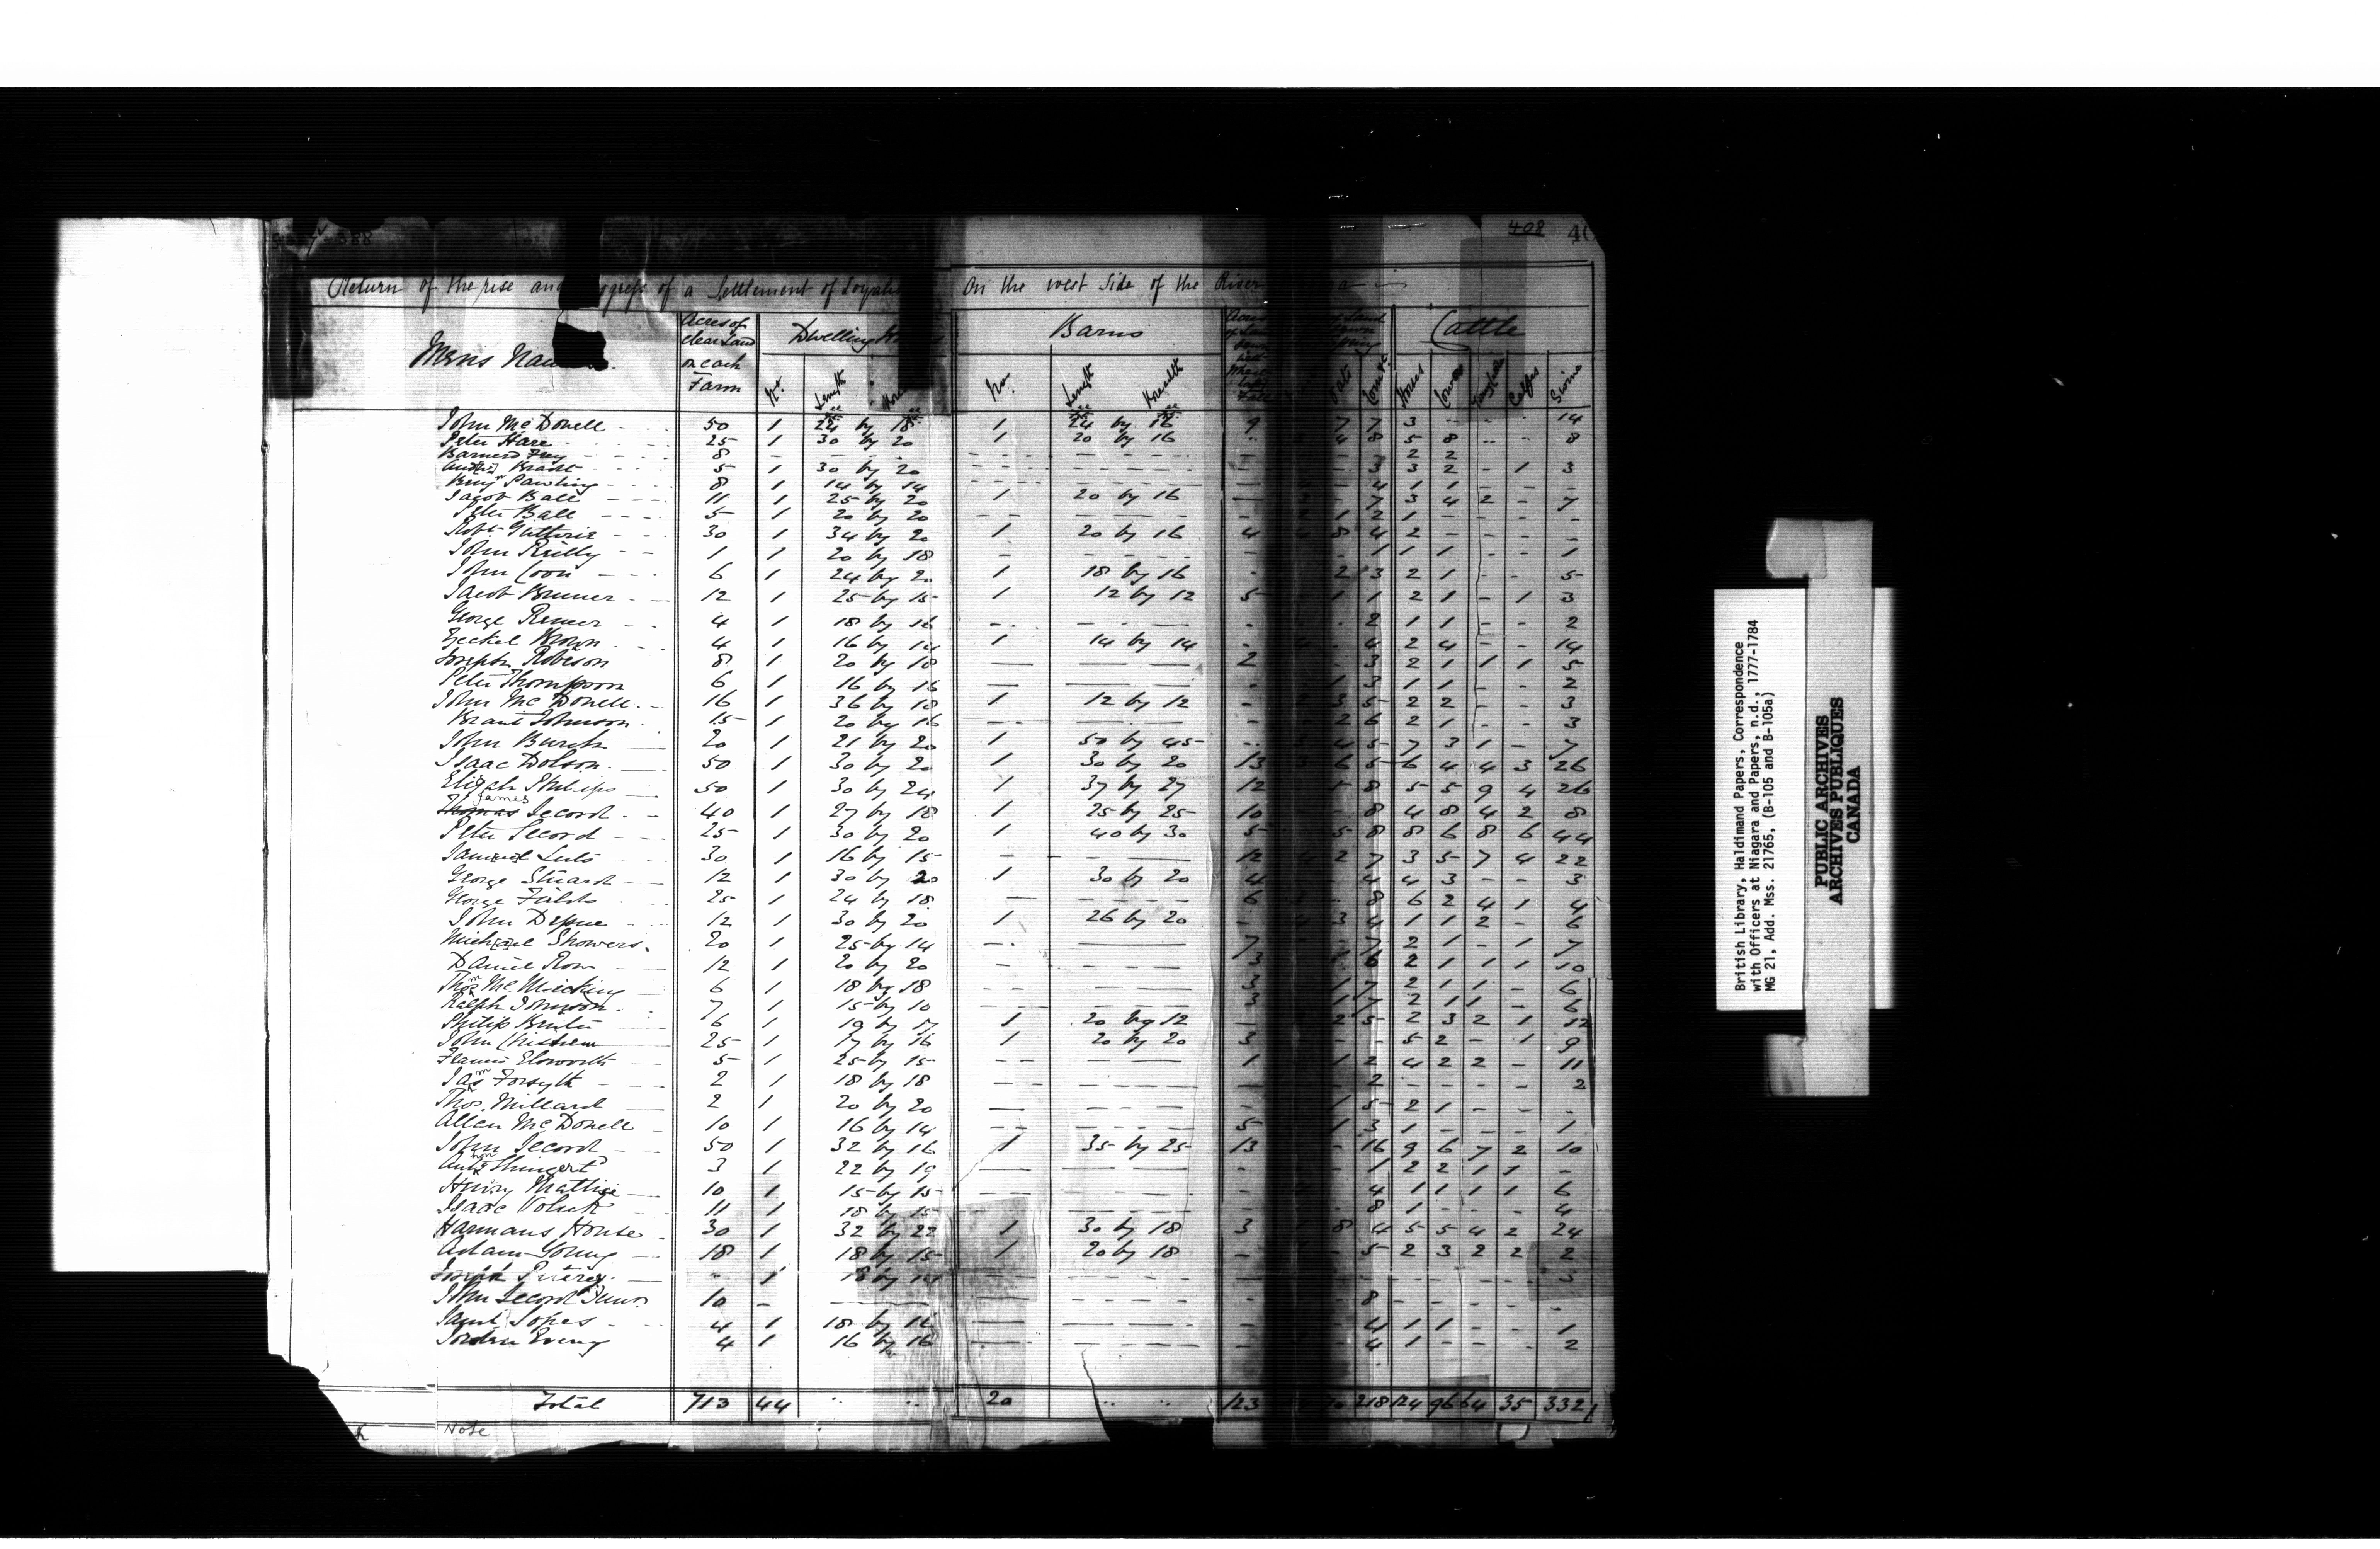 408
Return of the rise and of a Settlement of On the west Side of the River
Mens Acres of clear Land on each Farm Dwelling Barns Cattle
No. Length No. Length Breadth Oats Corn &c. Horses Cows Calfes Swine
John McDonell 50 1 24 by 18 1 24 by 16 9 7 7 3 14
Peter Hare 25 1 30 by 20 1 20 by 16 4 8 5 8 8
8 2 2
Brant 5 1 30 by 20 3 3 2 - 1 3
Benjn Pawling 8 1 14 by 14 4 1 1 - - -
Jacob Ball 11 1 25 by 20 1 20 by 16 7 3 4 2 - 7
Peter Ball 5 1 20 by 20 1 2 1 - - - -
Robt Gutterie 30 1 34 by 20 1 20 by 16 4 8 4 2 - - - -
John Reilly 1 1 20 by 18 1 1 1 - - 1
John Coon 6 1 24 by 20 1 18 by 16 - 2 3 2 1 - - 5
Jacob Bruner 12 1 25 by 15 1 12 by 12 5 1 1 2 1 - 1 3
George Remer 4 1 18 by 16 - 2 1 1 - - 2
Brown 4 1 16 by 14 1 14 by 14 - 4 2 4 - - 14
Joseph Robison 8 1 20 by 18 2 3 2 1 1 1 5
Peter Thompson 6 1 16 by 16 - 1 3 1 1 - - 2
John McDonell 16 1 36 by 18 1 12 by 12 - 3 5 2 2 - - 3
Brant Johnson 15 1 20 by 16 - 2 6 2 1 - - 3
John Burch 20 1 21 by 20 1 50 by 45 4 5 7 3 1 - 7
Isaac Dolson 50 1 30 by 20 1 30 by 20 13 6 5 6 4 4 3 26
Elijah Philips 50 1 30 by 24 1 37 by 27 12 5 8 5 5 9 4 26
James
Thomas Secord 40 1 27 by 18 1 25 by 25 10 - 8 4 8 4 2 8
Peter Secord 25 1 30 by 20 1 40 by 30 5 5 8 8 6 8 6 44
Samuel Luts 30 1 16 by 15 12 2 7 3 5 7 4 22
George Stuard 12 1 30 by 20 1 30 by 20 4 - 4 4 3 - - 3
George Fields 25 1 24 by 18 6 - 8 6 2 4 1 4
John Depue 12 1 30 by 20 1 26 by 20 3 4 1 1 2 - 6
Michael Showers 20 1 25 by 14 7 7 2 1 - 1 7
Daniel Row 12 1 20 by 20 3 6 2 1 1 1 10
Thos McMicking 6 1 18 by 18 3 1 7 2 1 1 - 6
Ralph Johnson 7 1 15 by 10 3 1 7 2 1 1 - 6
Philip 6 1 19 by 17 1 20 by 12 2 5 2 3 2 1 12
John 25 1 17 by 16 1 20 by 20 3 - - 5 2 - 1 9
Francis Elsworth 5 1 25 by 15 1 1 2 4 2 2 - 11
Jas Forsyth 2 1 18 by 18 2 - - - - 2
Thos. Millard 2 1 20 by 20 - 1 5 2 1 - - -
Allen McDonell 10 1 16 by 14 5 1 3 1 - - - 1
John Secord 50 1 32 by 16 1 35 by 25 13 - 16 9 6 7 2 10
3 1 22 by 19 - - 1 2 2 1 1 -
Henry Mattise 10 1 15 by 15 - - 4 1 1 1 1 6
Isaac 11 1 18 by 15 - - 8 1 - - - 4
Harmans House 30 1 32 by 22 1 30 by 18 3 8 4 5 5 4 2 24
Adam Young 18 1 18 by 15 1 20 by 18 - - 5 2 3 2 2 2
Joseph - 1 18 by 14 - - - - 3
John Secord Junr 10 - 8 - - - - -
4 1 18 by 16 - - 4 1 1 - - 1
4 1 16 by 16 - - 4 1 - - - 2
Total 713 44 20 123 70 218 124 96 64 35 332
Note
British Library, Haldimand Papers, Correspondence
with Officers at Niagara and Papers, n.d., 1777-1784
MG 21, Add. Mss. 21765, (B-105 and B-105a)
PUBLIC ARCHIVES
ARCHIVES PUBLIQUES
CANADA